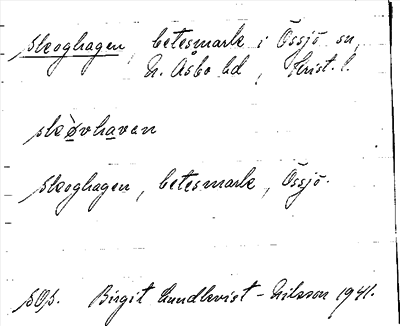 Skoghagen, betesmark i Össjö sn,
N. Åsbo hd, Krist. l.
skòvhavan
Skoghagen, betesmark, Össjö.
SOp. Birgit Lundkvist-Nilsson 1941.